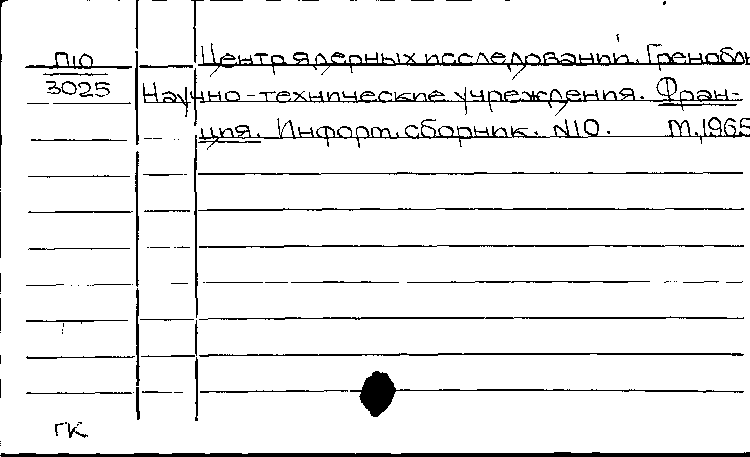 П10 Центр ядерных исследований. Гренобль
3025 Научно-технические учреждения. Фран-
ция. Информ. сборник. N10. М., 1965
ГК